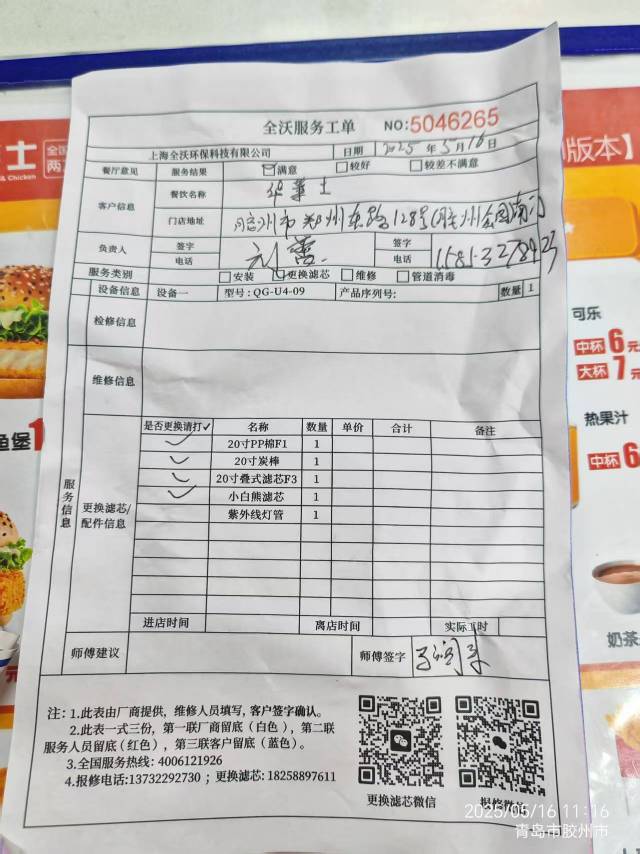 全沃服务工单 NO:5046265
上海全沃环保科技有限公司 日期 2025年5月16日
餐厅意见 服务结果 ☑满意 □较好 □较差不满意
客户信息 餐饮名称 华莱士
门店地址 胶州市郑州东路128号(胶州公园南门
负责人 签字 电话 签字 电话
服务类别 □安装 ☑更换滤芯 □维修 □管道消毒
设备信息 设备一 型号: QG-U4-09 产品序列号: 数量 1
检修信息
维修信息
服务信息
更换滤芯/配件信息
是否更换请打✓ 名称 数量 单价 合计 备注
✓ 20寸PP棉F1 1
✓ 20寸炭棒 1
✓ 20寸叠式滤芯F3 1
✓ 小白熊滤芯 1
紫外线灯管 1
进店时间 离店时间 实际工时
师傅建议 师傅签字
注: 1.此表由厂商提供, 维修人员填写, 客户签字确认。
2.此表一式三份, 第一联厂商留底(白色), 第二联
服务人员留底(红色), 第三联客户留底(蓝色)。
3.全国服务热线: 4006121926
4.报修电话:13732292730 ; 更换滤芯: 18258897611
更换滤芯微信
士
全国
两
& Chicken
鱼堡 1
版本】
可乐
中杯 6元
大杯 7元
热果汁
中杯 6
奶茶
2025/05/16 11:16
青岛市胶州市